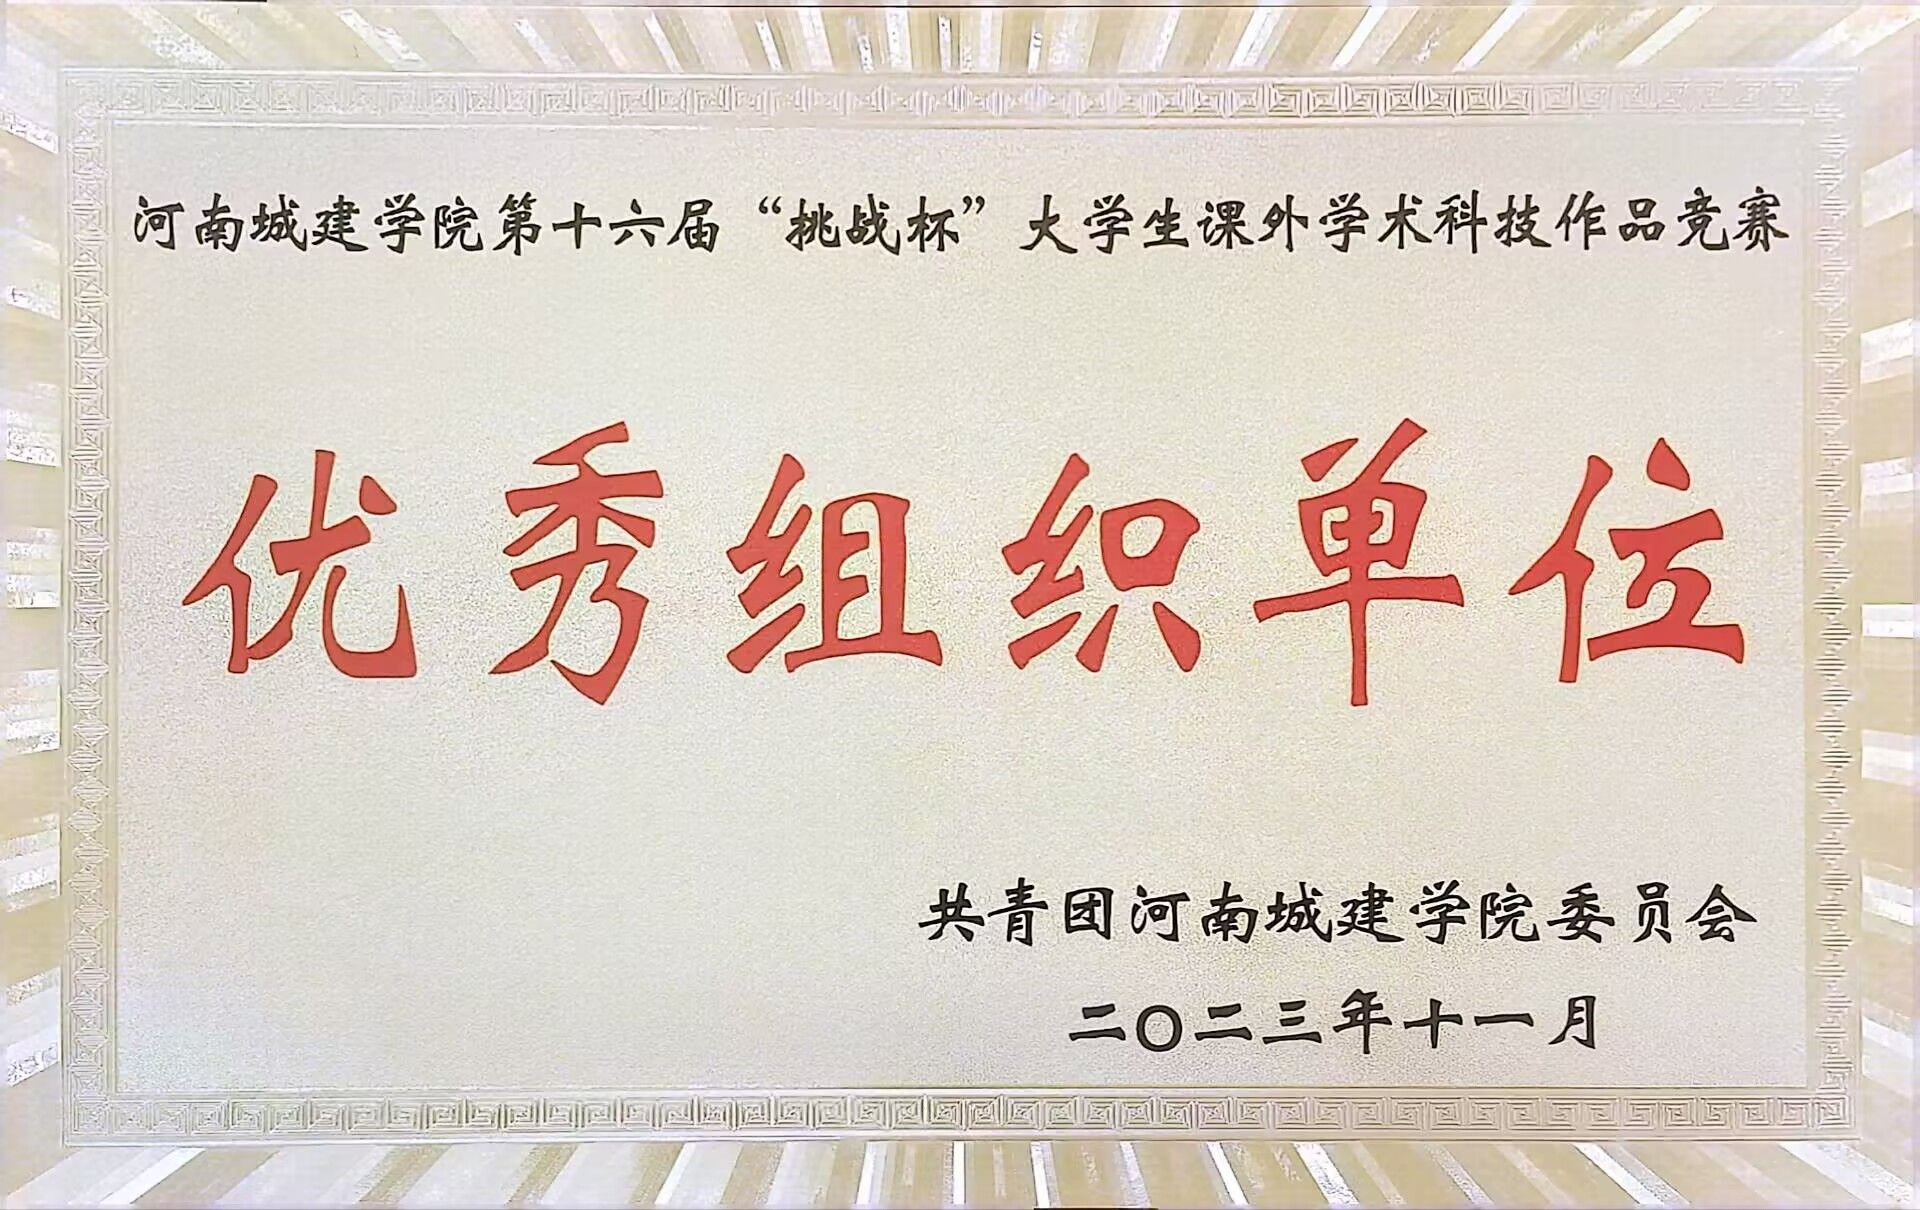 河南城建学院第十六届“挑战杯”大学生课外学术科技作品竞赛
优秀组织单位
共青团河南城建学院委员会
二〇二三年十一月